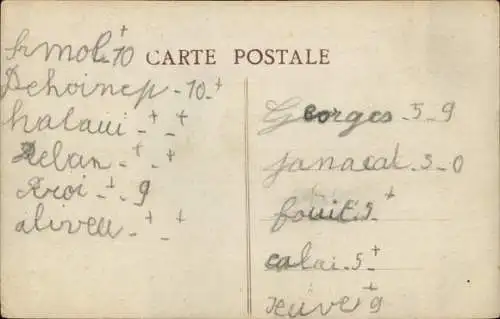 CARTE POSTALE
mol + 10
Dehoinep - 10 - +
halaui - + - +
Delan - + - +
- + - 9
aliveu - + - +
Georges - 5 - 9
janacal - 3 - 0
fouit 5 - +
calai - 5 - +
+ 9